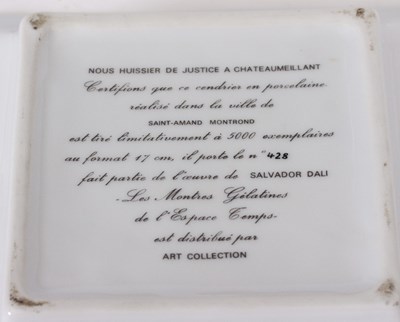 NOUS HUISSIER DE JUSTICE A CHATEAUMEILLANT
Certifions que ce cendrier en porcelaine
réalisé dans la ville de
SAINT-AMAND MONTROND
est tiré limitativement à 5000 exemplaires
au format 17 cm, il porte le n° 428
fait partie de l'œuvre de SALVADOR DALI
-Les Montres Gélatines
de l'Espace Temps-
est distribué par
ART COLLECTION